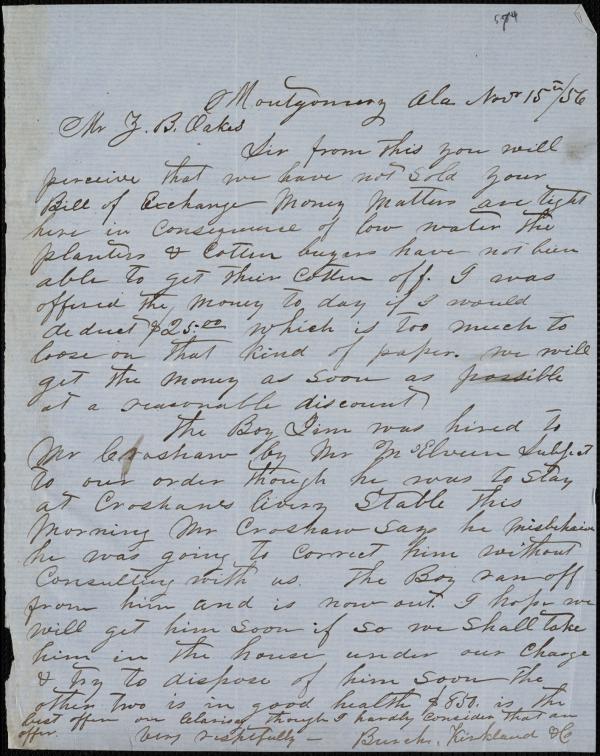 574
Montgomery Ala Novr 15th/56
Mr Z. B. Oakes
Sir from this you will
perceive that we have not sold your
Bill of Exchange Money Matters are tight
here in Consequence of low water the
planters & Cotten buyers have not been
able to get their Cotten off. I was
offered the money to day if I would
deduct $25.00 which is too much to
loose on that kind of paper. we will
get the money as soon as possible
at a reasonable discount
The Boy Jim was hired to
Mr Croshaw by Mr McElveen Subject
to our order though he was to Stay
at Croshaws livery Stable this
Morning Mr Croshaw Says he misbehaived
he was going to Correct him without
Consulting with us. The Boy ran off
from him and is now out. I hope we
will get him Soon if so we Shall take
him in the house under our Charge
& try to dispose of him Soon The
other two is in good health $850. is the
best offer on Clarissa, though I hardly Consider that an
offer. Very respetfully – Burch, Kirkland & Co